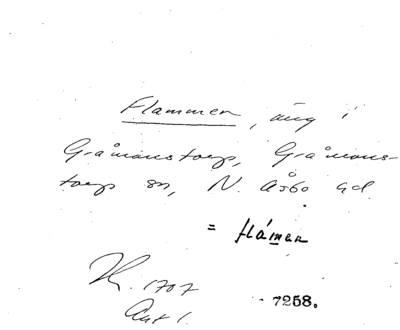 Flammen, äng i
Gråmanstorp, Gråmans-
torp sn, N. Åsbo hd.
= flámen
K. 1707
Akt 1.
7258.